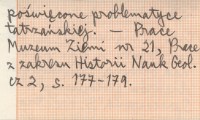 poświęcone problematyce
tatrzańskiej. — Prace
Muzeum Ziemi nr 21, Prace
z zakresu Historii Nauk Geol.
cz 2, s. 177-179.